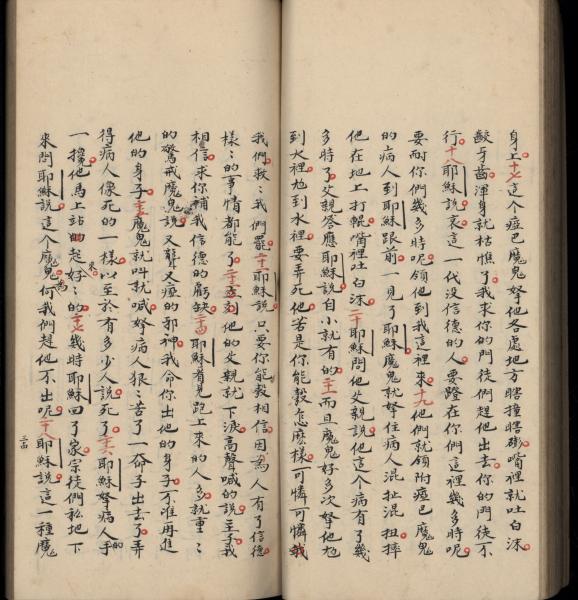 身上十七這个瘂巴魔鬼拏他各處地方瞎撞瞎磡嘴裡就吐白沫
齩牙齒渾身就枯憔了我求你的門徒們趕他出去你的門徒不
行十八耶穌説哀這一代没信德的人要蹬在你們這裡幾多時呢
要耐你們幾多時呢領他到我這裡來十九他們就領附瘂巴魔鬼
的病人到耶穌跟前一見了耶穌魔鬼就拏住病人混扯混扭摔
他在地上打輥嘴裡吐白沫二十耶穌問他父親説他這个病有了幾
多時了父親答應耶穌説自小就有的二十一而且魔鬼好多次拏他尥
到火裡尥到水裡要弄死他若是你能彀怎庅樣可憐可憐我
我們救〻我們罷二十二耶穌説只要你能彀相信因為人有了信德
樣〻的事情都能了二十三孩到他的父親就下淚高聲喊的説主乎我
相信求你輔我信德的虧缺二十四耶穌看見跑上來的人多就重〻
的驚戒魔鬼説又聾又瘂的邪神我命你出他的身子不准再進
他的身子二十五魔鬼就叫就喊拏病人狠〻苦了一命子出去了弄
得病人像死的一樣以至於有多少人説死了二十六耶穌拏病人的手
一攙他馬上站的起來好〻的二十七幾時耶穌回了家宗徒們私地下
來問耶穌説這个魔鬼為何我們趕他不出呢二十八耶穌説這一種魔
三四